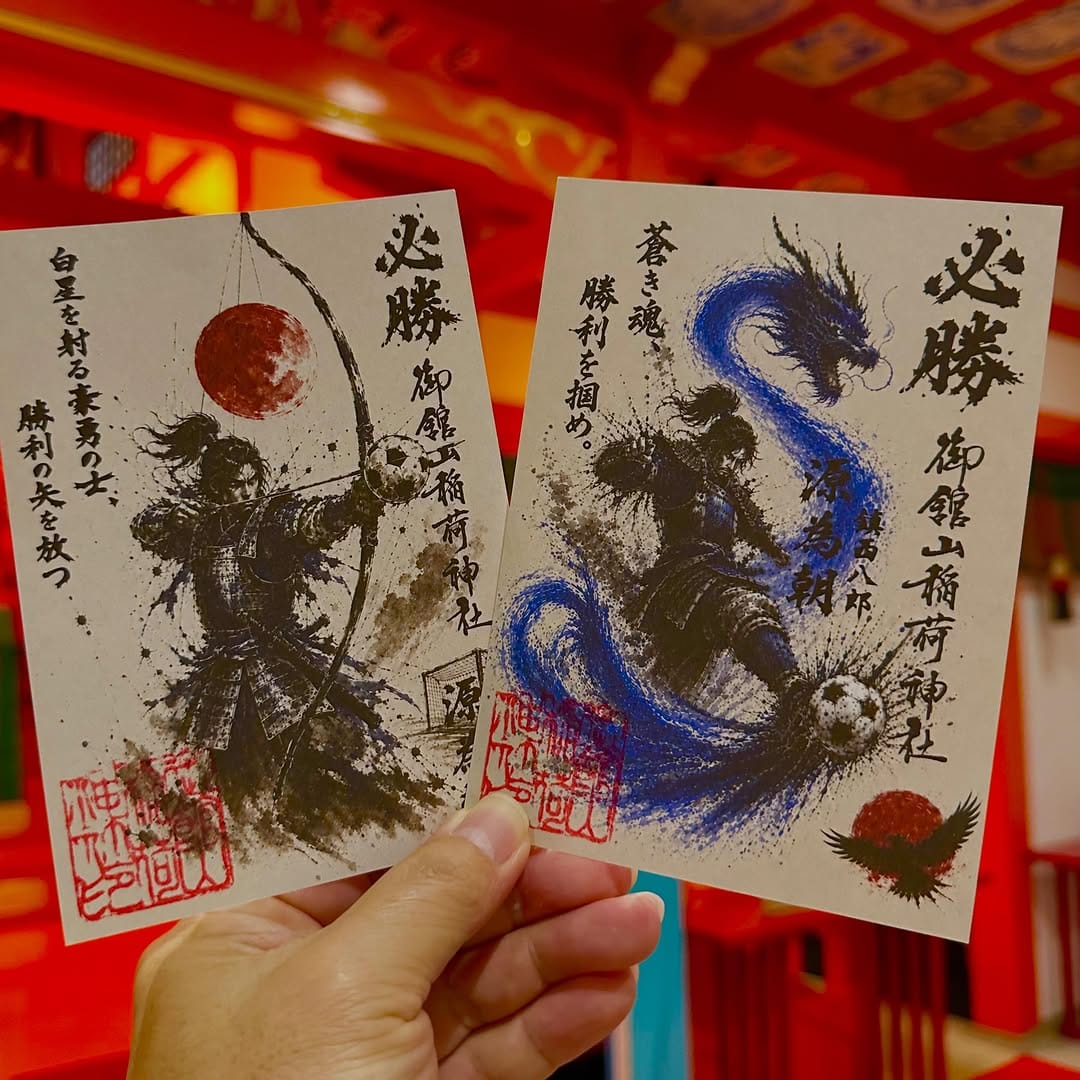 必勝
御舘山稲荷神社
白星を射る豪勇の士、
勝利の矢を放つ
源為
必勝
御舘山稲荷神社
鎮西八郎
源為朝
蒼き魂、
勝利を掴め。